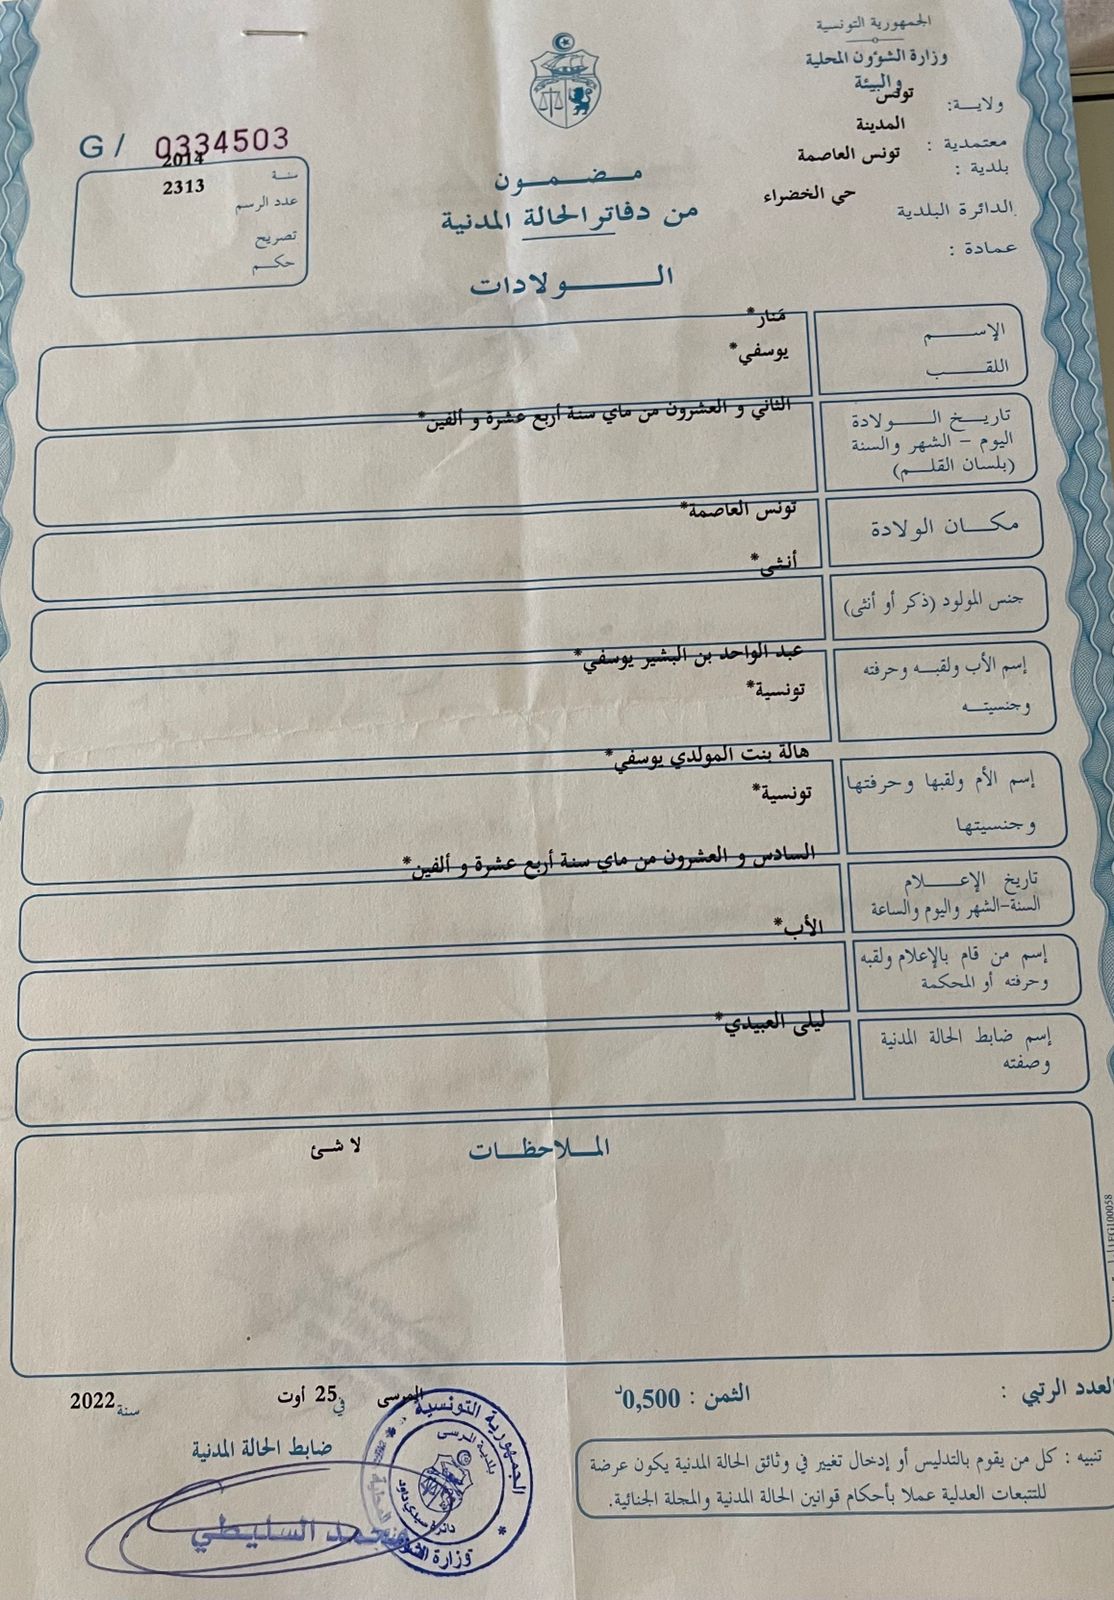 الجمهورية التونسية
وزارة الشؤون المحلية
والبيئة
ولاية: تونس
معتمدية : المدينة
بلدية : تونس العاصمة
الدائرة البلدية حي الخضراء
عمادة :
G / 0334503
سنة 2014
عدد الرسم 2313
تصريح
حكم
مضمون
من دفاتر الحالة المدنية
الولادات
الإسم منار*
اللقب يوسفي*
تاريخ الولادة
اليوم – الشهر والسنة
(بلسان القلم)
الثاني و العشرون من ماي سنة أربع عشرة و ألفين*
مكان الولادة
تونس العاصمة*
جنس المولود (ذكر أو أنثى)
أنثى*
إسم الأب ولقبه وحرفته
وجنسيته
عبد الواحد بن البشير يوسفي*
تونسية*
إسم الأم ولقبها وحرفتها
وجنسيتها
هالة بنت المولدي يوسفي*
تونسية*
تاريخ الإعلام
السنة-الشهر واليوم والساعة
السادس و العشرون من ماي سنة أربع عشرة و ألفين*
إسم من قام بالإعلام ولقبه
وحرفته أو المحكمة
الأب*
إسم ضابط الحالة المدنية
وصفته
ليلى العبيدي*
الملاحظات
لا شئ
العدد الرتبي :
الثمن : 0,500د
المرسى في 25 أوت سنة 2022
ضابط الحالة المدنية
محمد السليطي
الجمهورية التونسية
بلدية المرسى
دائرة سيدي داود
تنبيه : كل من يقوم بالتدليس أو إدخال تغيير في وثائق الحالة المدنية يكون عرضة
للتتبعات العدلية عملا بأحكام قوانين الحالة المدنية والمجلة الجنائية.